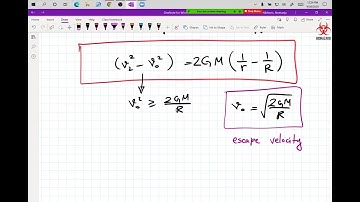 (v₂² - v₀²) = 2GM (1/r - 1/R)
v₀² ≥ 2GM/R
v₀ = √(2GM/R)
escape velocity